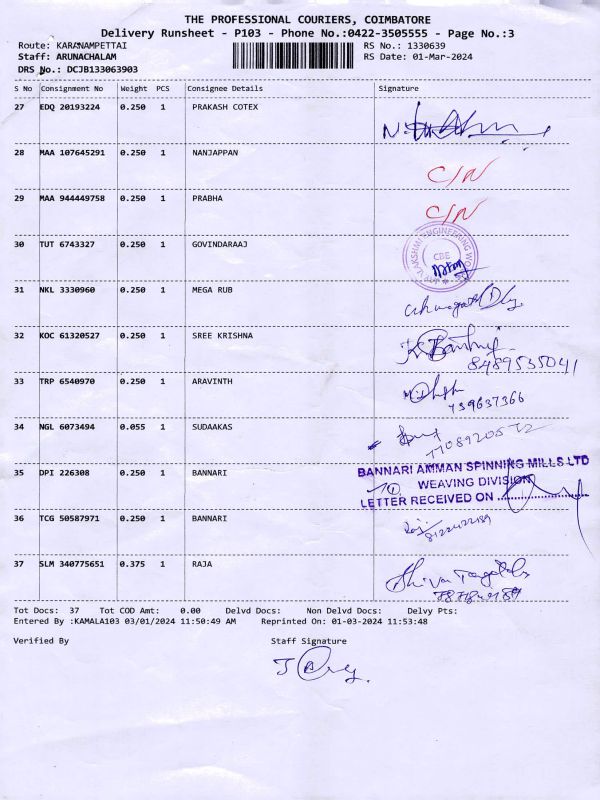 THE PROFESSIONAL COURIERS, COIMBATORE
Delivery Runsheet - P103 - Phone No.:0422-3505555 - Page No.:3
Route: KARANAMPETTAI RS No.: 1330639
Staff: ARUNACHALAM RS Date: 01-Mar-2024
DRS No.: DCJB133063903
S No Consignment No Weight PCS Consignee Details Signature
27 EDQ 20193224 0.250 1 PRAKASH COTEX
28 MAA 107645291 0.250 1 NANJAPPAN C/N
29 MAA 944449758 0.250 1 PRABHA C/N
30 TUT 6743327 0.250 1 GOVINDARAAJ
LAKSHMI ENGINEERING WORKS CBE
31 NKL 3330960 0.250 1 MEGA RUB
32 KOC 61320527 0.250 1 SREE KRISHNA
8489535041
33 TRP 6540970 0.250 1 ARAVINTH
739637366
34 NGL 6073494 0.055 1 SUDAAKAS
BANNARI AMMAN SPINNING MILLS LTD
35 DPI 226308 0.250 1 BANNARI WEAVING DIVISION
LETTER RECEIVED ON
36 TCG 50587971 0.250 1 BANNARI
37 SLM 340775651 0.375 1 RAJA
Tot Docs: 37 Tot COD Amt: 0.00 Delvd Docs: Non Delvd Docs: Delvy Pts:
Entered By :KAMALA103 03/01/2024 11:50:49 AM Reprinted On: 01-03-2024 11:53:48
Verified By Staff Signature